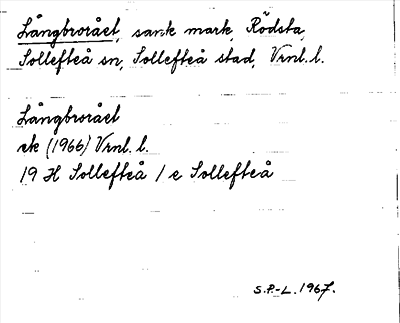 Långbroråel, sank mark, Rödsta,
Sollefteå sn, Sollefteå stad, Vrnl. l.
Långbroråel
ek (1966) Vrnl. l.
19 H Sollefteå 1 e Sollefteå
S.P.-L. 1967.